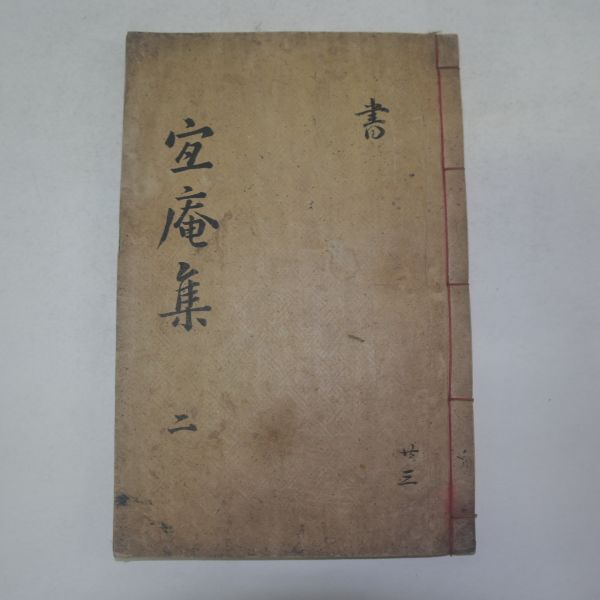 書
宜庵集 二
共三